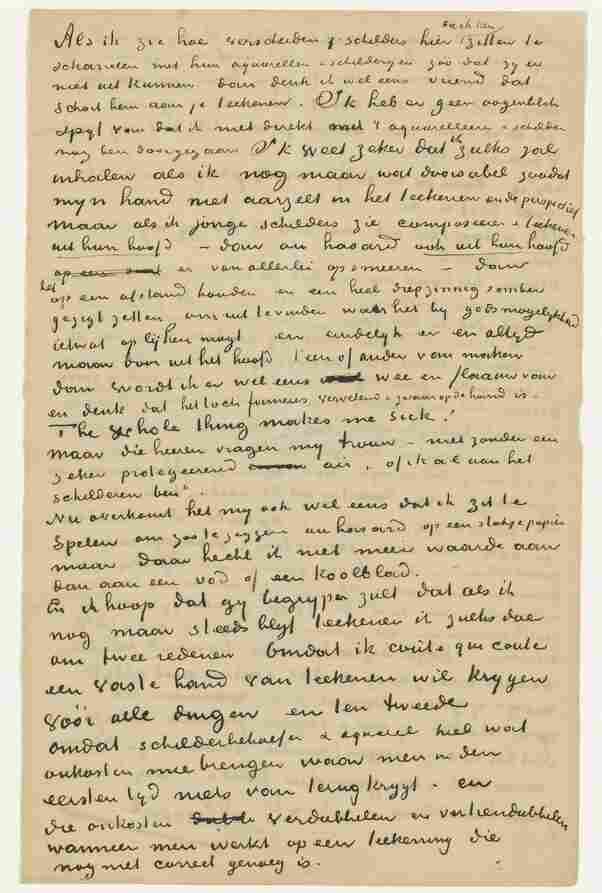 zuchten
Als ik zie hoe verscheiden schilders hier zitten te
scharrelen met hun aquarellen & schilderijen zoo dat zij er
niet uit kunnen dan denk ik wel eens vriend dat
schort hem aan je teekenen. Ik heb er geen oogenblik
spijt van dat ik niet direkt met 't aquarelleeren & schilderen
nog ben doorgegaan Ik weet zeker dat ik zulks zal
inhalen als ik nog maar wat doorsabel zoodat
mijn hand niet aarzelt in het teekenen en de perspectief
maar als ik jonge schilders zie composeeren & teekenen
uit hun hoofd – dan au hasard ook uit hun hoofd
er van allerlei op smeeren – dan
het
op een afstand houden en een heel diepzinnig somber
gezigt zetten om uit te vinden waar het bij gods mogelijkheid
ietwat op lijken mogt en eindelijk er en altijd
maar door uit het hoofd 't een of ander van maken
dan wordt ik er wel eens wee en flaauw van
en denk dat het toch vervelend & zwaar op de hand is.
The whole thing makes me sick!
maar die heeren vragen mij trouw – niet zonder een
zeker protegeerend air, "of ik al aan het
schilderen ben".
Nu overkomt het mij ook wel eens dat ik zit te
spelen om zoo te zeggen au hasard op een stukje papier
maar daar hecht ik niet meer waarde aan
dan aan een vod of een koolblad.
En ik hoop dat gij begrijpen zult dat als ik
nog maar steeds blijf teekenen ik zulks doe
om twee redenen Omdat ik coute que coute
een vaste hand van teekenen wil krijgen
vóór alle dingen en ten tweede
omdat schilderen & aquarel heel wat
onkosten mee brengen waar men in den
eersten tijd niets van terug krijgt. en
die onkosten verdubbelen en vertiendubbelen
wanneer men werkt op een teekening die
nog niet correct genoeg is.